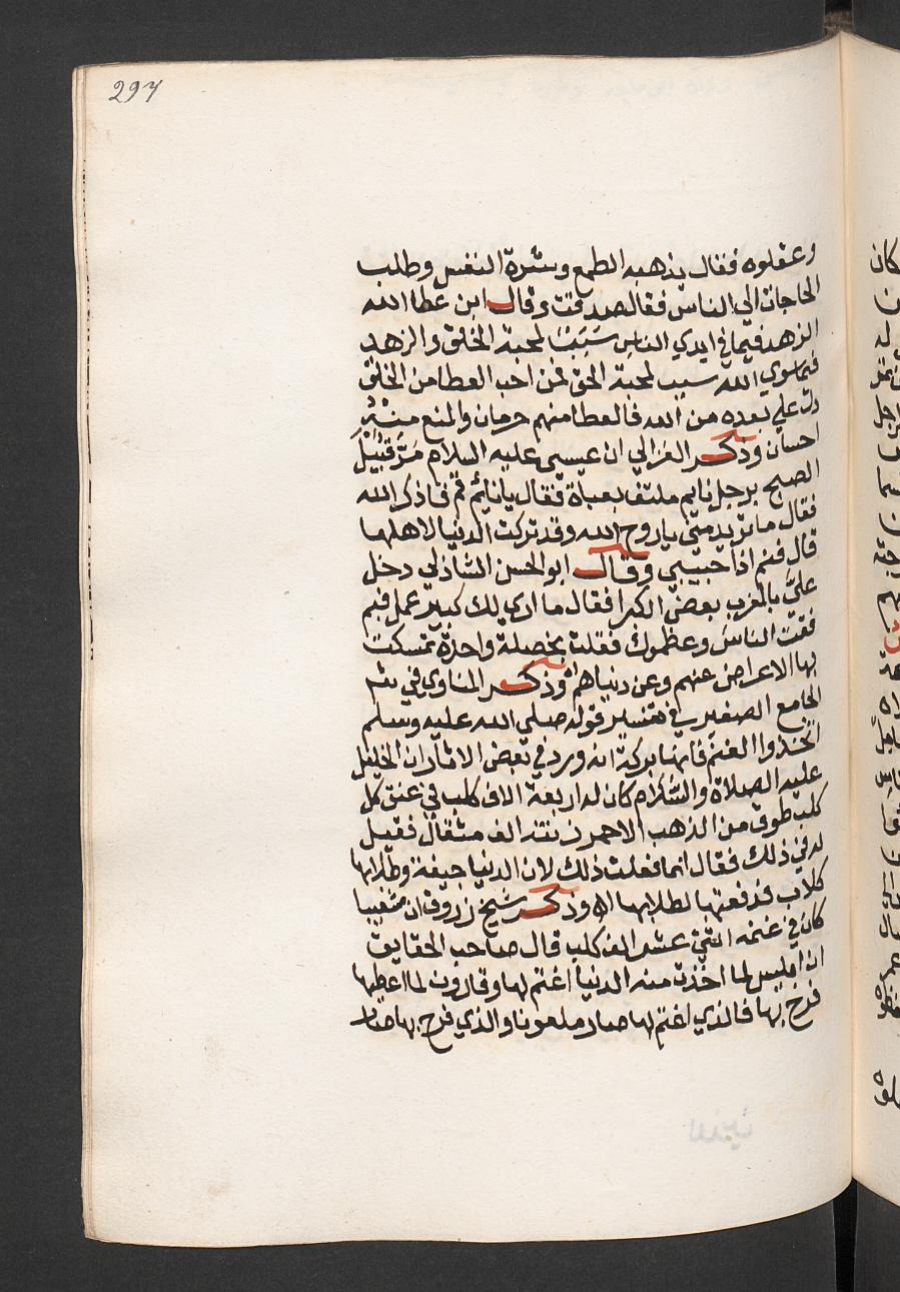 297
وعقلوه فقال يذهبه الطمع وشرة النفس وطلب
الحاجات الي الناس فقال صدقت وقال ابن عطا الله
الزهد فيما في ايدي الناس سَبَبٌ لمحبة الخلق والزهد
فيما سوي الله سبب لمحبة الحق فمن احب العطا من الخلق
دل علي بعده من الله فالعطا منهم حرمان والمنع منهم
احسان وذكر الغزالي ان عيسي عليه السلام مَرَّ قبيل
الصبح برجل نايم ملتف بعباة فقال يا نائم قم فاذكر الله
فقال ما تريد مني يا روح الله وقد تركت الدنيا لاهلها
قال فنم اذا حبيبي وقال ابو الحسن الشاذلي دخل
عليّ بالمغرب بعض الكبرا فقال ما اري لك كبير عمل فبم
فقت الناس وعظموك فقلت بخصلة واحدة تمسكت
بها الاعراض عنهم وعن دنياهم وذكر المناوي في شر
الجامع الصغير في تفسير قوله صلي الله عليه وسلم
اتخذوا الغنم فانها بركة انه ورد في بعض الاثار ان الخليل
عليه الصلاة والسلام كان له اربعة الاف كلب في عنق كل
كلب طوق من الذهب الاحمر زنته الف مثقال فقيل
له في ذلك فقال انما فعلت ذلك لان الدنيا جيفة وطلابها
كلاب فدفعتها لطلابها اه وذكر شيخ زروق ان شعيبا
كان في غنمه اثني عشر الف كلب قال صاحب الحقايق
ان ابليس لما اخذت منه الدنيا اغتم لها وقارون لما اعطيها
فرح بها فالذي اغتم لها صار ملعونا والذي فرح بها صار